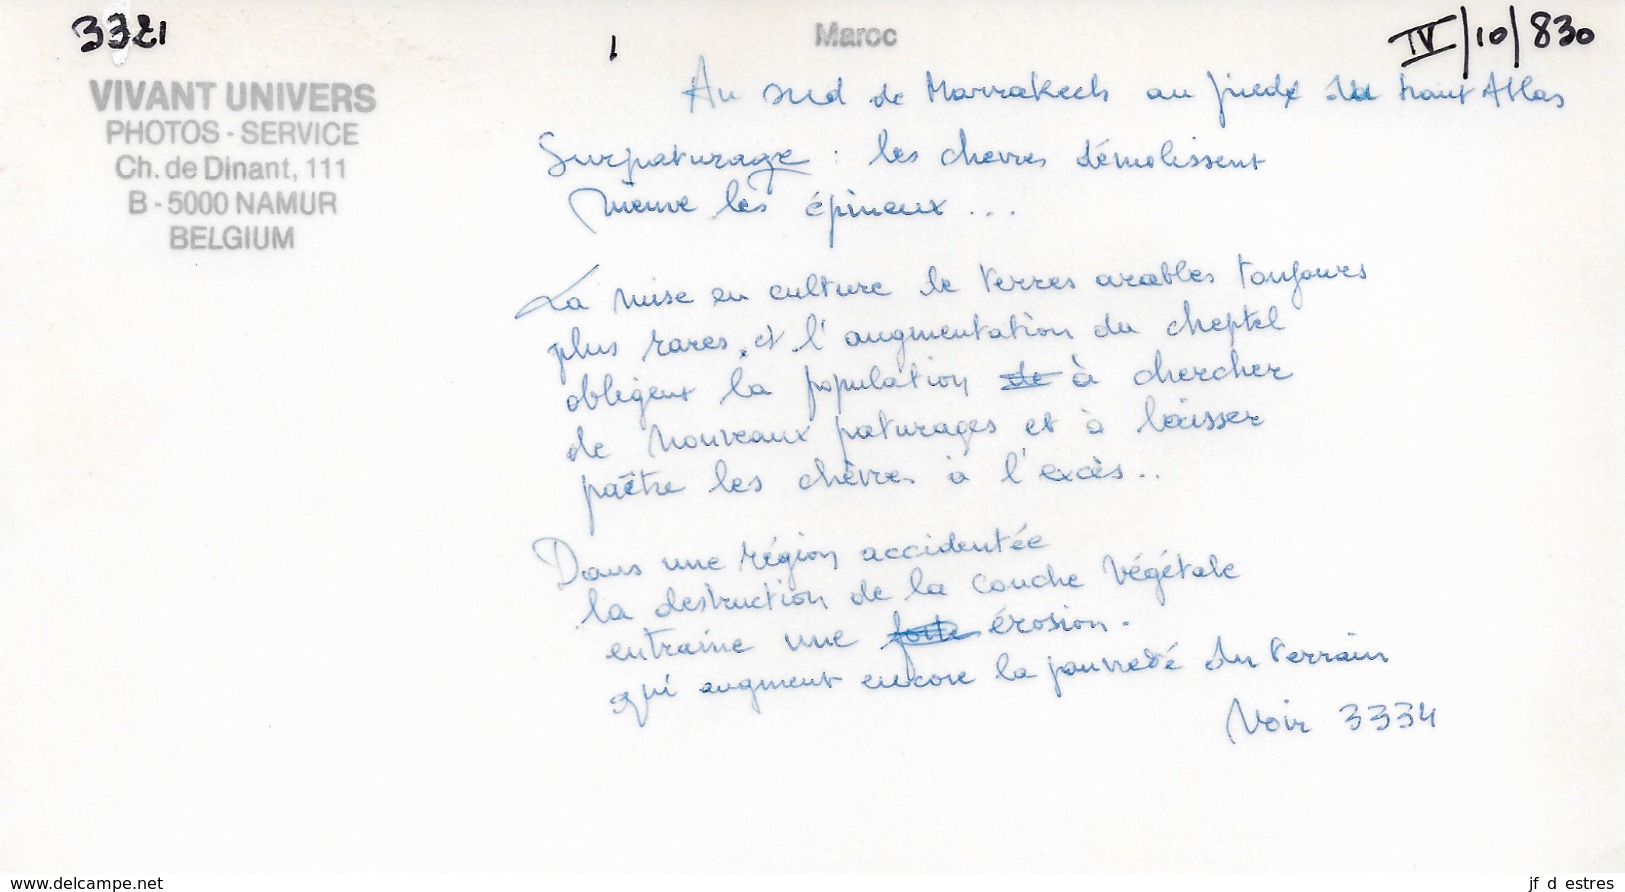 3321
1
Maroc
IV/10/830
VIVANT UNIVERS
PHOTOS - SERVICE
Ch. de Dinant, 111
B - 5000 NAMUR
BELGIUM
Au sud de Marrakech au pied du haut Atlas
Surpaturage : les chevres démolissent
même les épineux...
La mise en culture de terres arables toujours
plus rares, et l'augmentation du cheptel
obligent la population de à chercher
de nouveaux paturages et à laisser
paître les chèvres à l'excès..
Dans une région accidentée
la destruction de la couche végétale
entraine une forte érosion.
qui augment encore la pauvreté du terrain
Voir 3334
www.delcampe.net
jf d estres